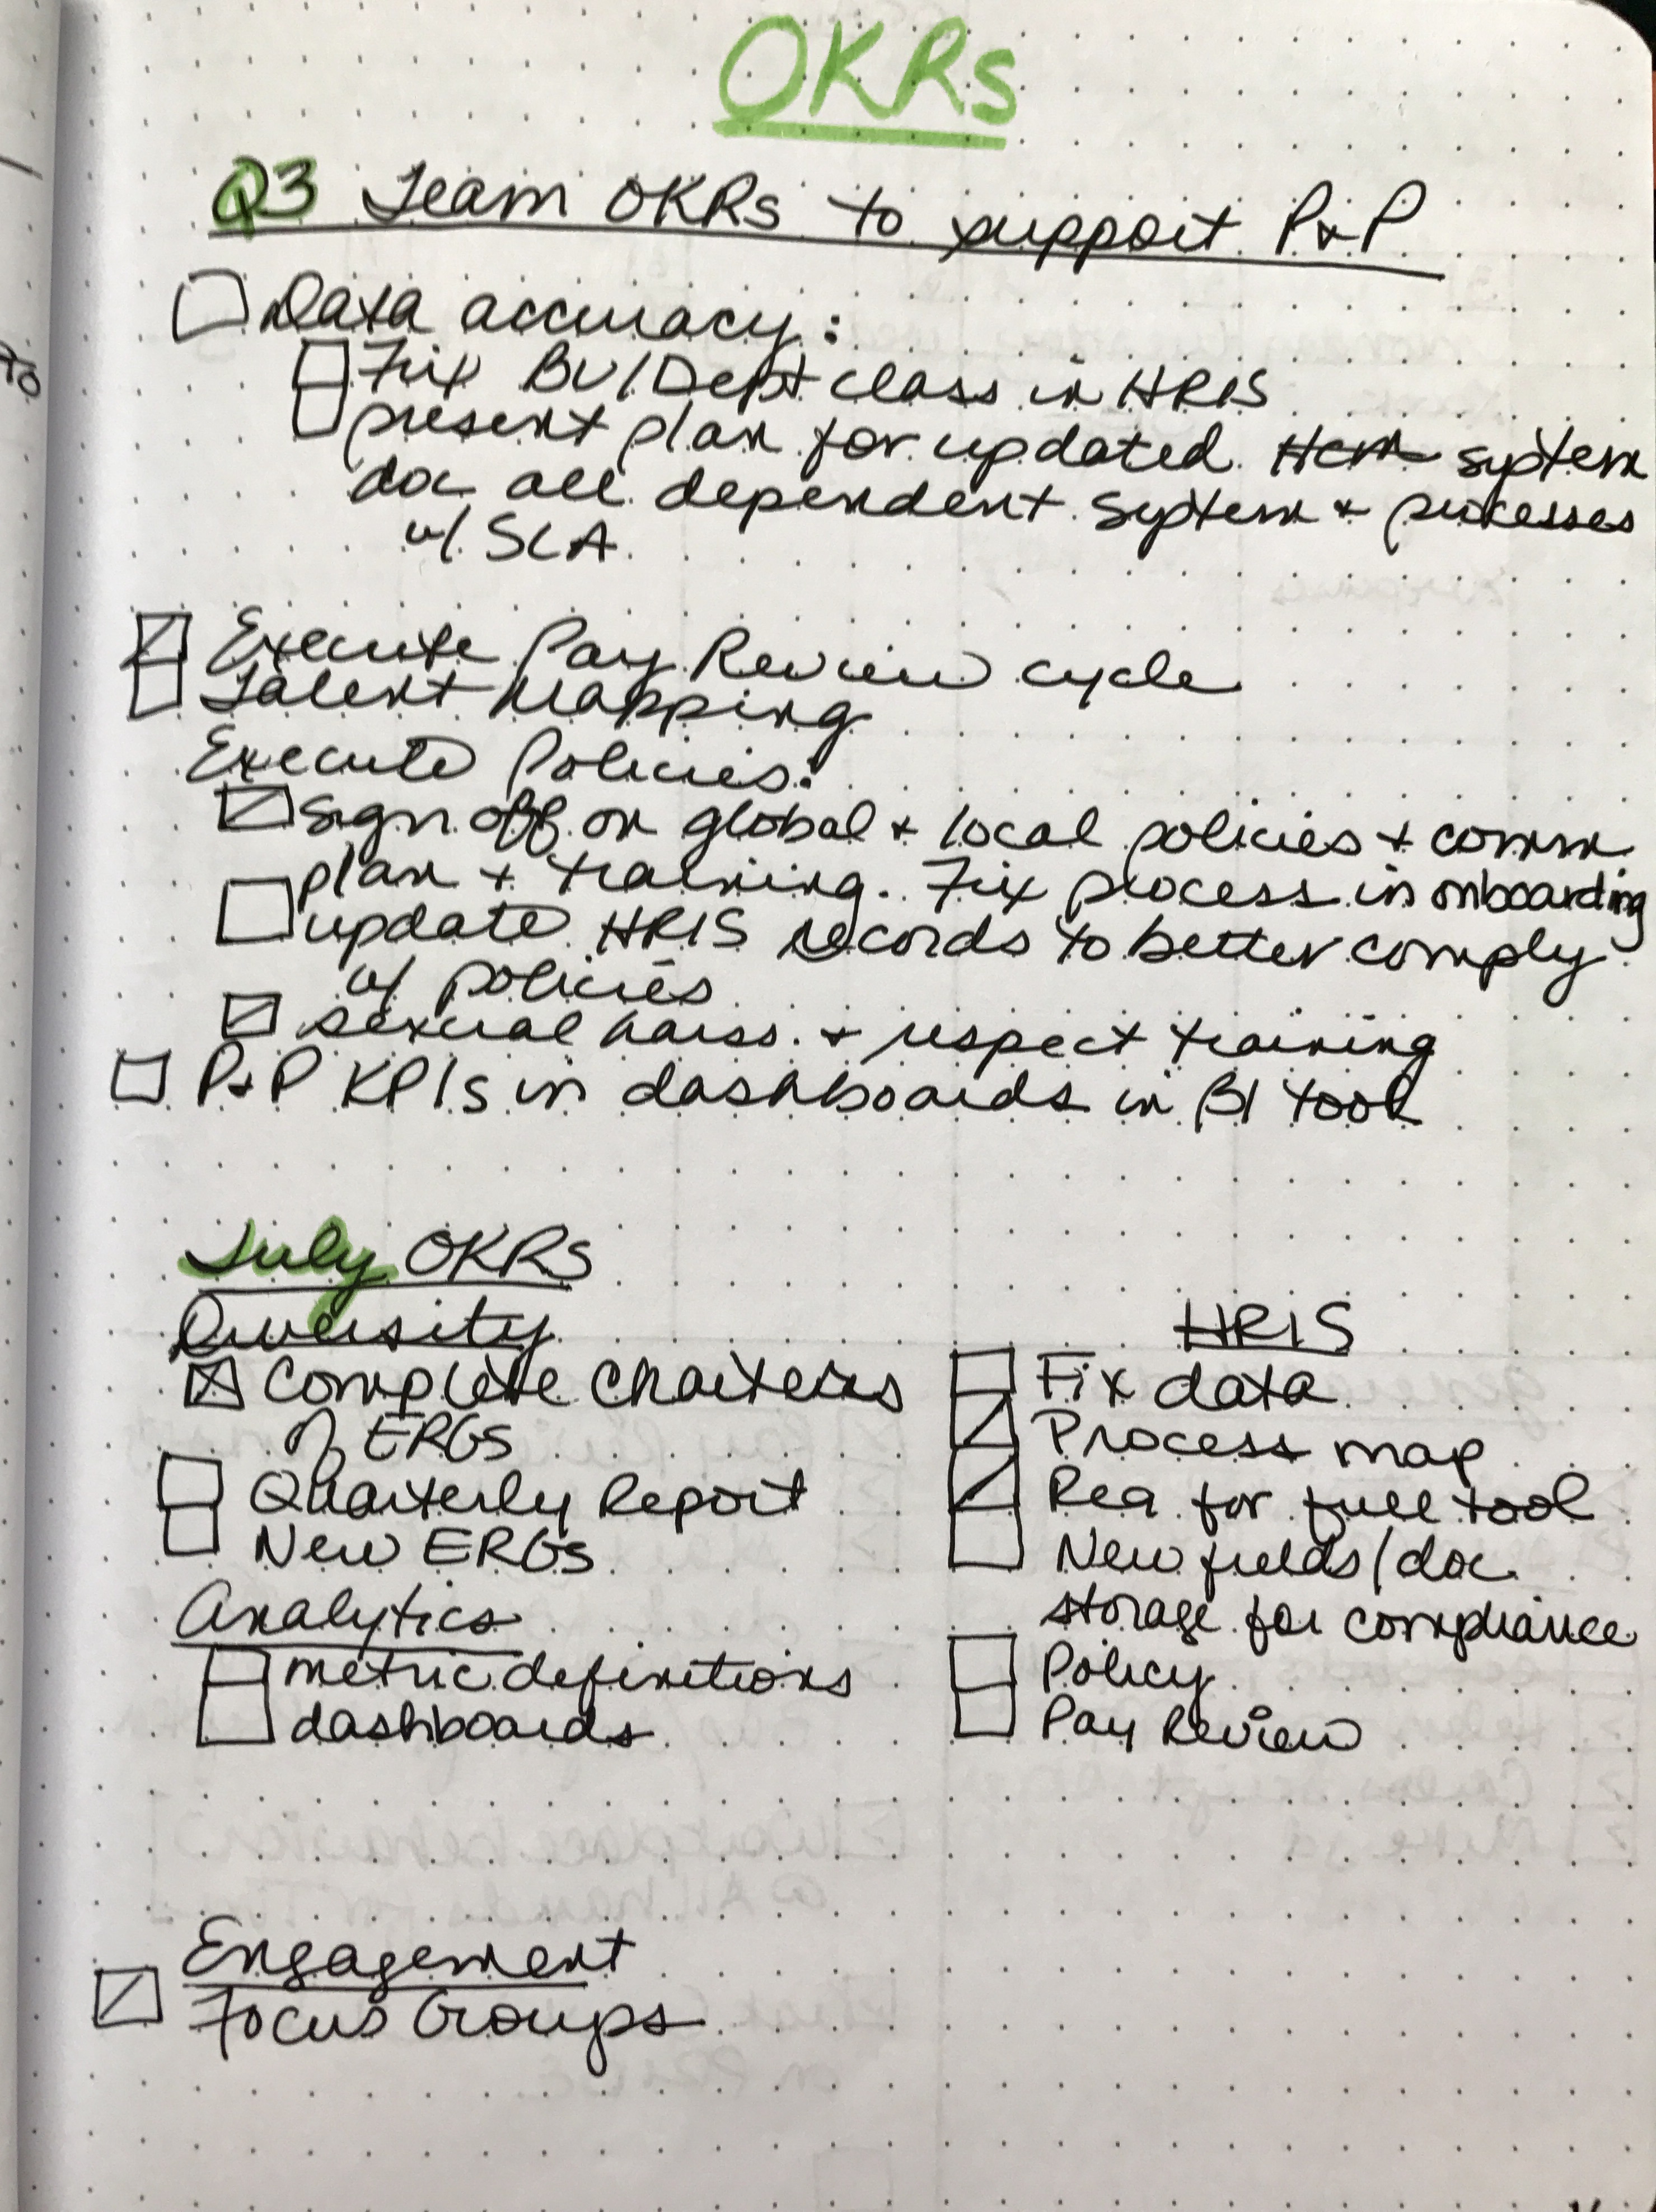 OKRs
Q3 Team OKRs to support P+P
Data accuracy:
Fix BU/Dept class in HRIS
present plan for updated HCM system
doc all dependent system + processes
w/ SLA
Execute Pay Review cycle
Talent Mapping
Execute Policies:
sign off on global + local policies + comm
plan + training. Fix process in onboarding
update HRIS records to better comply
w/ policies
sexual harss. + respect training
P+P KPIs in dashboards in BI tool
July OKRs
Diversity
Complete Charters
of ERGs
Quarterly Report
New ERGs
Analytics
metric definitions
dashboards
HRIS
Fix data
Process map
Req for full tool
New fields/doc
storage for compliance
Policy
Pay Review
Engagement
Focus Groups
to